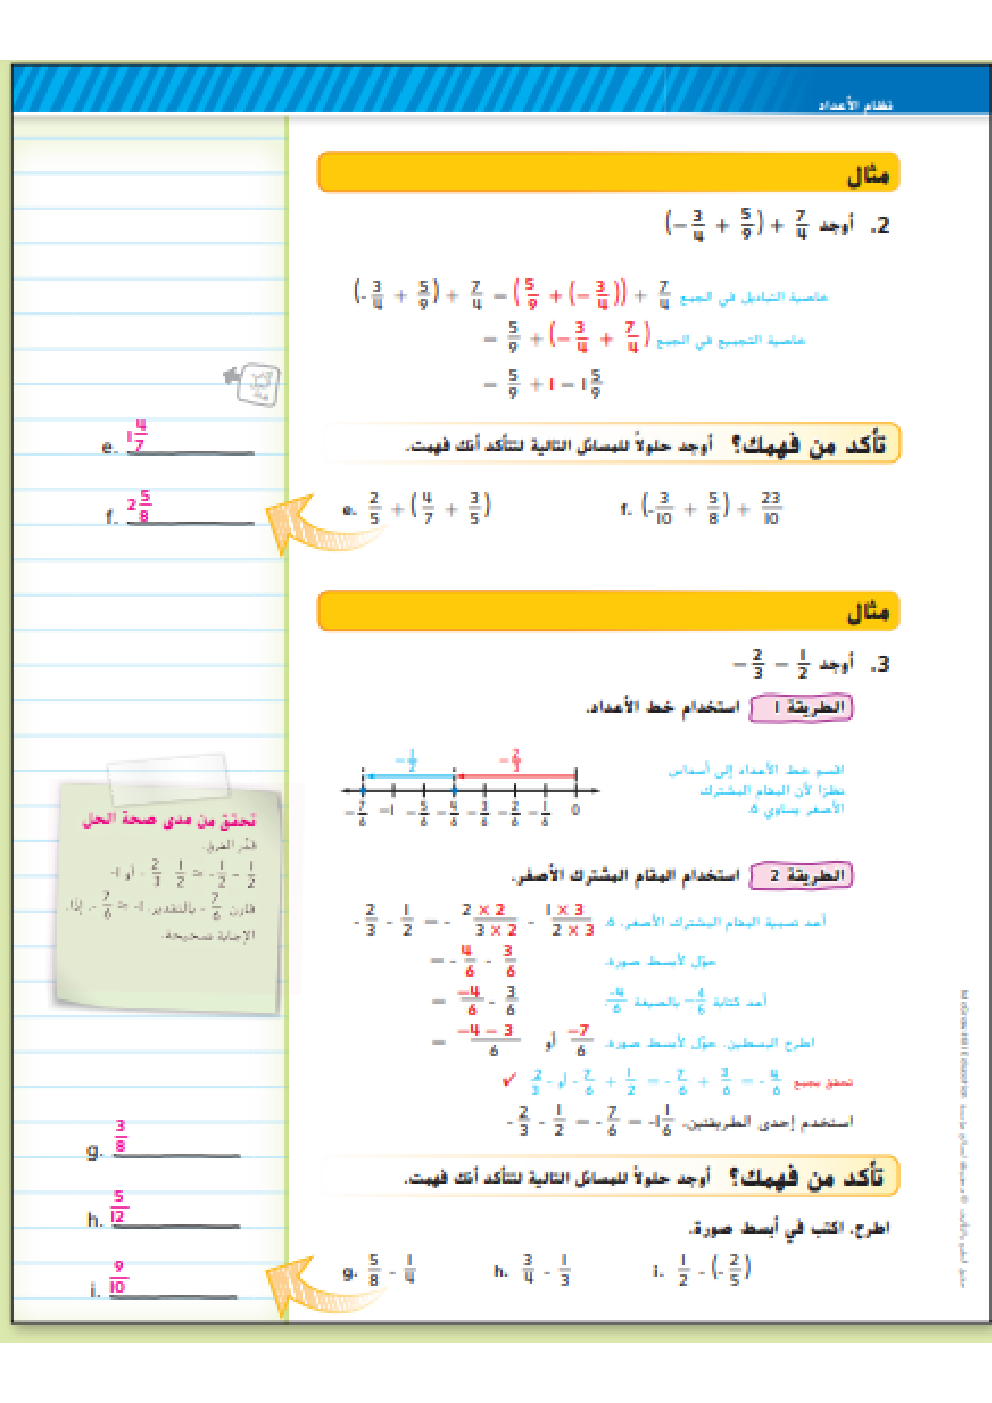 نظام الأعداد
مثال
2. أوجد (−3/4 + 5/9) + 7/4
(-3/4 + 5/9) + 7/4 = (5/9 + (−3/4)) + 7/4 خاصية التبديل في الجمع
= 5/9 + (−3/4 + 7/4) خاصية التجميع في الجمع
= 5/9 + 1 = 1 5/9
تأكد من فهمك؟ أوجد حلولاً للمسائل التالية لتتأكد أنك فهمت.
e. 2/5 + (4/7 + 3/5)
f. (-3/10 + 5/8) + 23/10
e. 1 4/7
f. 2 5/8
مثال
3. أوجد −2/3 − 1/2
الطريقة 1 استخدام خط الأعداد.
اقسم خط الأعداد إلى أسداس
نظرًا لأن المقام المشترك
الأصغر يساوي 6.
−1/2 −2/3
−7/6 −1 −5/6 −4/6 −3/6 −2/6 −1/6 0
الطريقة 2 استخدام المقام المشترك الأصغر.
-2/3 - 1/2 = - 2 × 2/3 × 2 - 1 × 3/2 × 3 أعد تسمية المقام المشترك الأصغر، 6.
= - 4/6 - 3/6 حوّل لأبسط صورة.
= −4/6 - 3/6 أعد كتابة −4/6 بالصيغة -4/6.
= −4 − 3/6 أو −7/6 اطرح البسطين. حوّل لأبسط صورة.
تحقق بجمع -7/6 + 1/2 = -7/6 + 3/6 = -4/6 أو -2/3 ✓
استخدم إحدى الطريقتين، -2/3 - 1/2 = -7/6 = -1 1/6
تحقق من مدى صحة الحل
قدّر الفرق.
-2/3 - 1/2 ≈ -1/2 - 1/2 أو 1-
قارن -7/6 بالتقدير. -7/6 ≈ 1-. إذًا،
الإجابة صحيحة.
تأكد من فهمك؟ أوجد حلولاً للمسائل التالية لتتأكد أنك فهمت.
اطرح. اكتب في أبسط صورة.
g. 5/8 - 1/4
h. 3/4 - 1/3
i. 1/2 - (-2/5)
g. 3/8
h. 5/12
i. 9/10